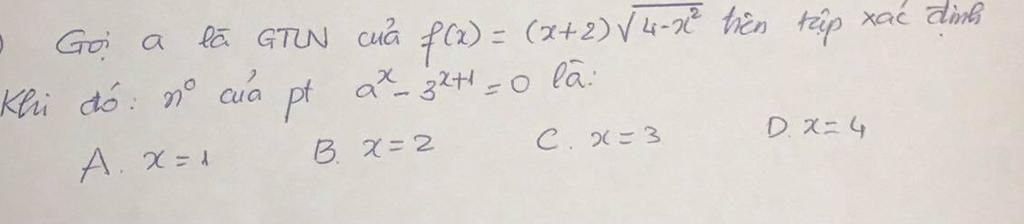 ) Gọi a là GTLN của f(x) = (x+2)√4-x² trên tập xác định
Khi đó: n⁰ của pt aˣ - 3ˣ⁺¹ = 0 là:
A. x = 1 B. x = 2 C. x = 3 D. x = 4